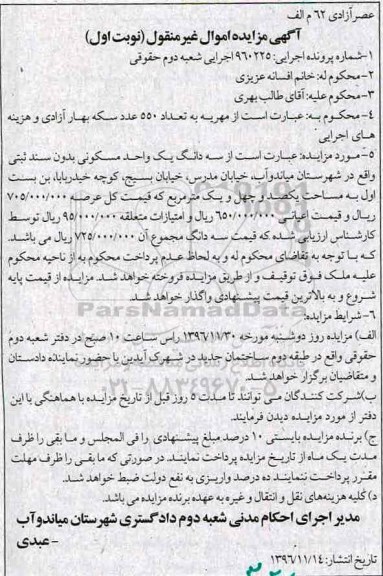 عصر آزادی ۶۲ م الف
آگهی مزایده اموال غیرمنقول (نوبت اول)
۱-شماره پرونده اجرایی: ۹۶۰۲۲۵ اجرایی شعبه دوم حقوقی
۲-محکوم له: خانم افسانه عزیزی
۳-محکوم علیه: آقای طالب بهری
۴- محکوم به: عبارت است از مهریه به تعداد ۵۵۰ عدد سکه بهار آزادی و هزینه
های اجرایی
۵- مورد مزایده: عبارت است از سه دانگ یک واحد مسکونی بدون سند ثبتی
واقع در شهرستان میاندوآب، خیابان مدرس، خیابان بسیج، کوچه حیدربابا، بن بست
اول به مساحت یکصد و چهل و یک مترمربع که قیمت کل عرصه ۷۰۵/۰۰۰/۰۰۰
ریال و قیمت اعیانی ۶۵۰/۰۰۰/۰۰۰ ریال و امتیازات متعلقه ۹۵/۰۰۰/۰۰۰ ریال توسط
کارشناس ارزیابی شده که قیمت سه دانگ مجموع آن ۷۲۵/۰۰۰/۰۰۰ ریال می باشد.
که با توجه به تقاضای محکوم له و به لحاظ عدم پرداخت محکوم به از ناحیه محکوم
علیه ملک فوق توقیف و از طریق مزایده فروخته خواهد شد. مزایده از قیمت پایه
شروع و به بالاترین قیمت پیشنهادی واگذار خواهد شد.
۶- شرایط مزایده:
الف) مزایده روز دوشنبه مورخه ۱۳۹۶/۱۱/۳۰ راس ساعت ۱۰ صبح در دفتر شعبه دوم
حقوقی واقع در طبقه دوم ساختمان جدید در شهرک آیدین با حضور نماینده دادستان
و متقاضیان برگزار خواهد شد.
ب) شرکت کنندگان می توانند تا مدت ۵ روز قبل از تاریخ مزایده با هماهنگی با این
دفتر از مورد مزایده دیدن فرمایند.
ج) برنده مزایده بایستی ۱۰ درصد مبلغ پیشنهادی را فی المجلس و مابقی را ظرف
مدت یک ماه از تاریخ مزایده پرداخت نمایند. در صورتی که مابقی را ظرف مهلت
مقرر پرداخت ننمایند ده درصد واریزی به نفع دولت ضبط خواهد شد.
د) کلیه هزینه های نقل و انتقال و غیره به عهده برنده مزایده می باشد.
مدیر اجرای احکام مدنی شعبه دوم دادگستری شهرستان میاندوآب
- عبدی
تاریخ انتشار: ۱۳۹۶/۱۱/۱۴
ParsNamadData
۰۲۱-۸۸۳۴۹۶۷۰